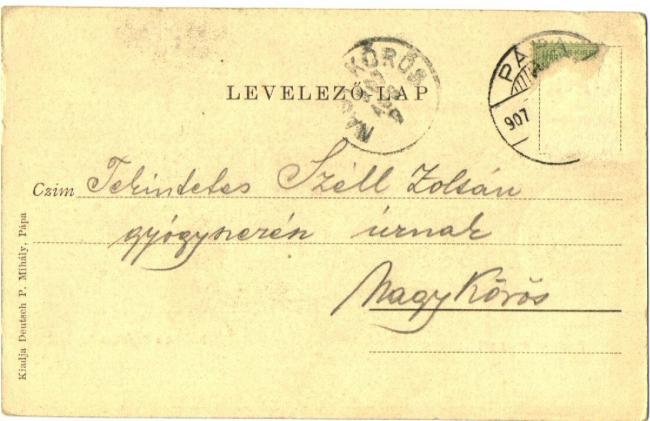 LEVELEZŐ-LAP
NAGY-KŐRÖS
PÁPA
907
Czim Tekintetes Széll Zoltán
gyógyszerész úrnak
Nagy Kőrös
Kiadja Deutsch P. Mihály, Pápa